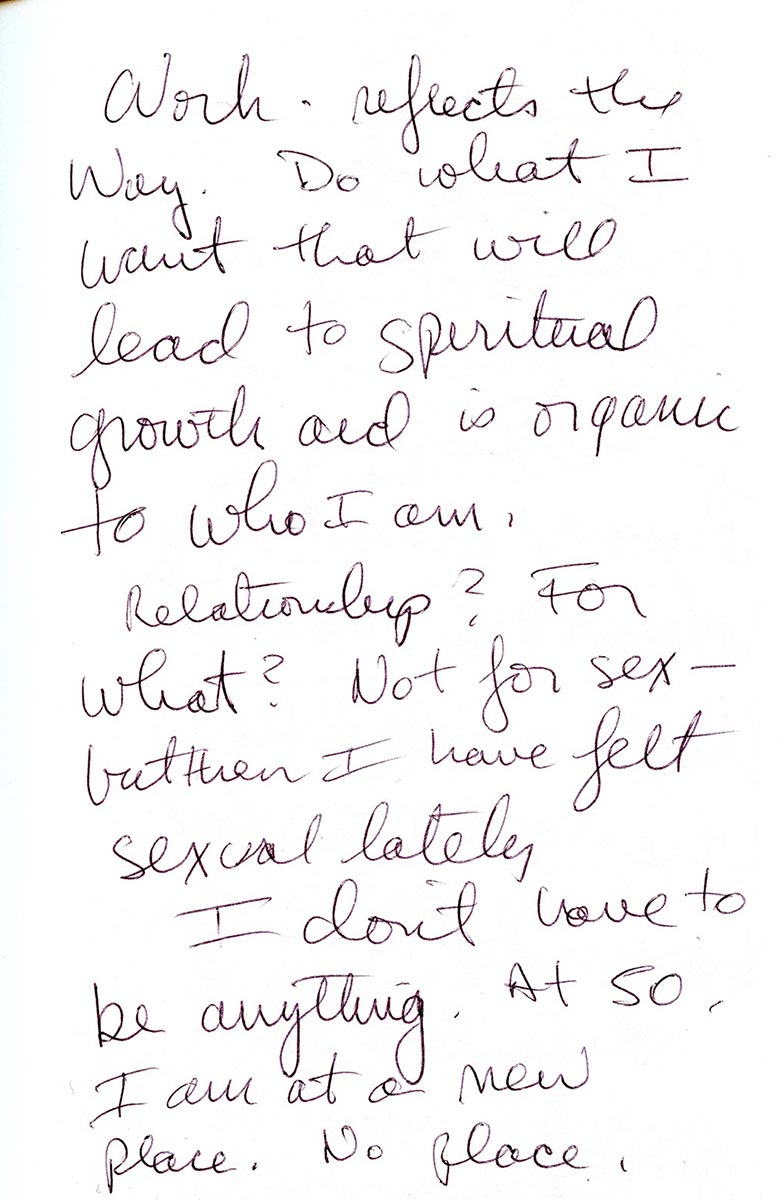 Work - reflects the
Way. Do what I
want that will
lead to spiritual
growth and is organic
to who I am.
Relationship? For
what? Not for sex —
but then I have felt
sexual lately
I don't have to
be anything. At 50,
I am at a new
place. No place.